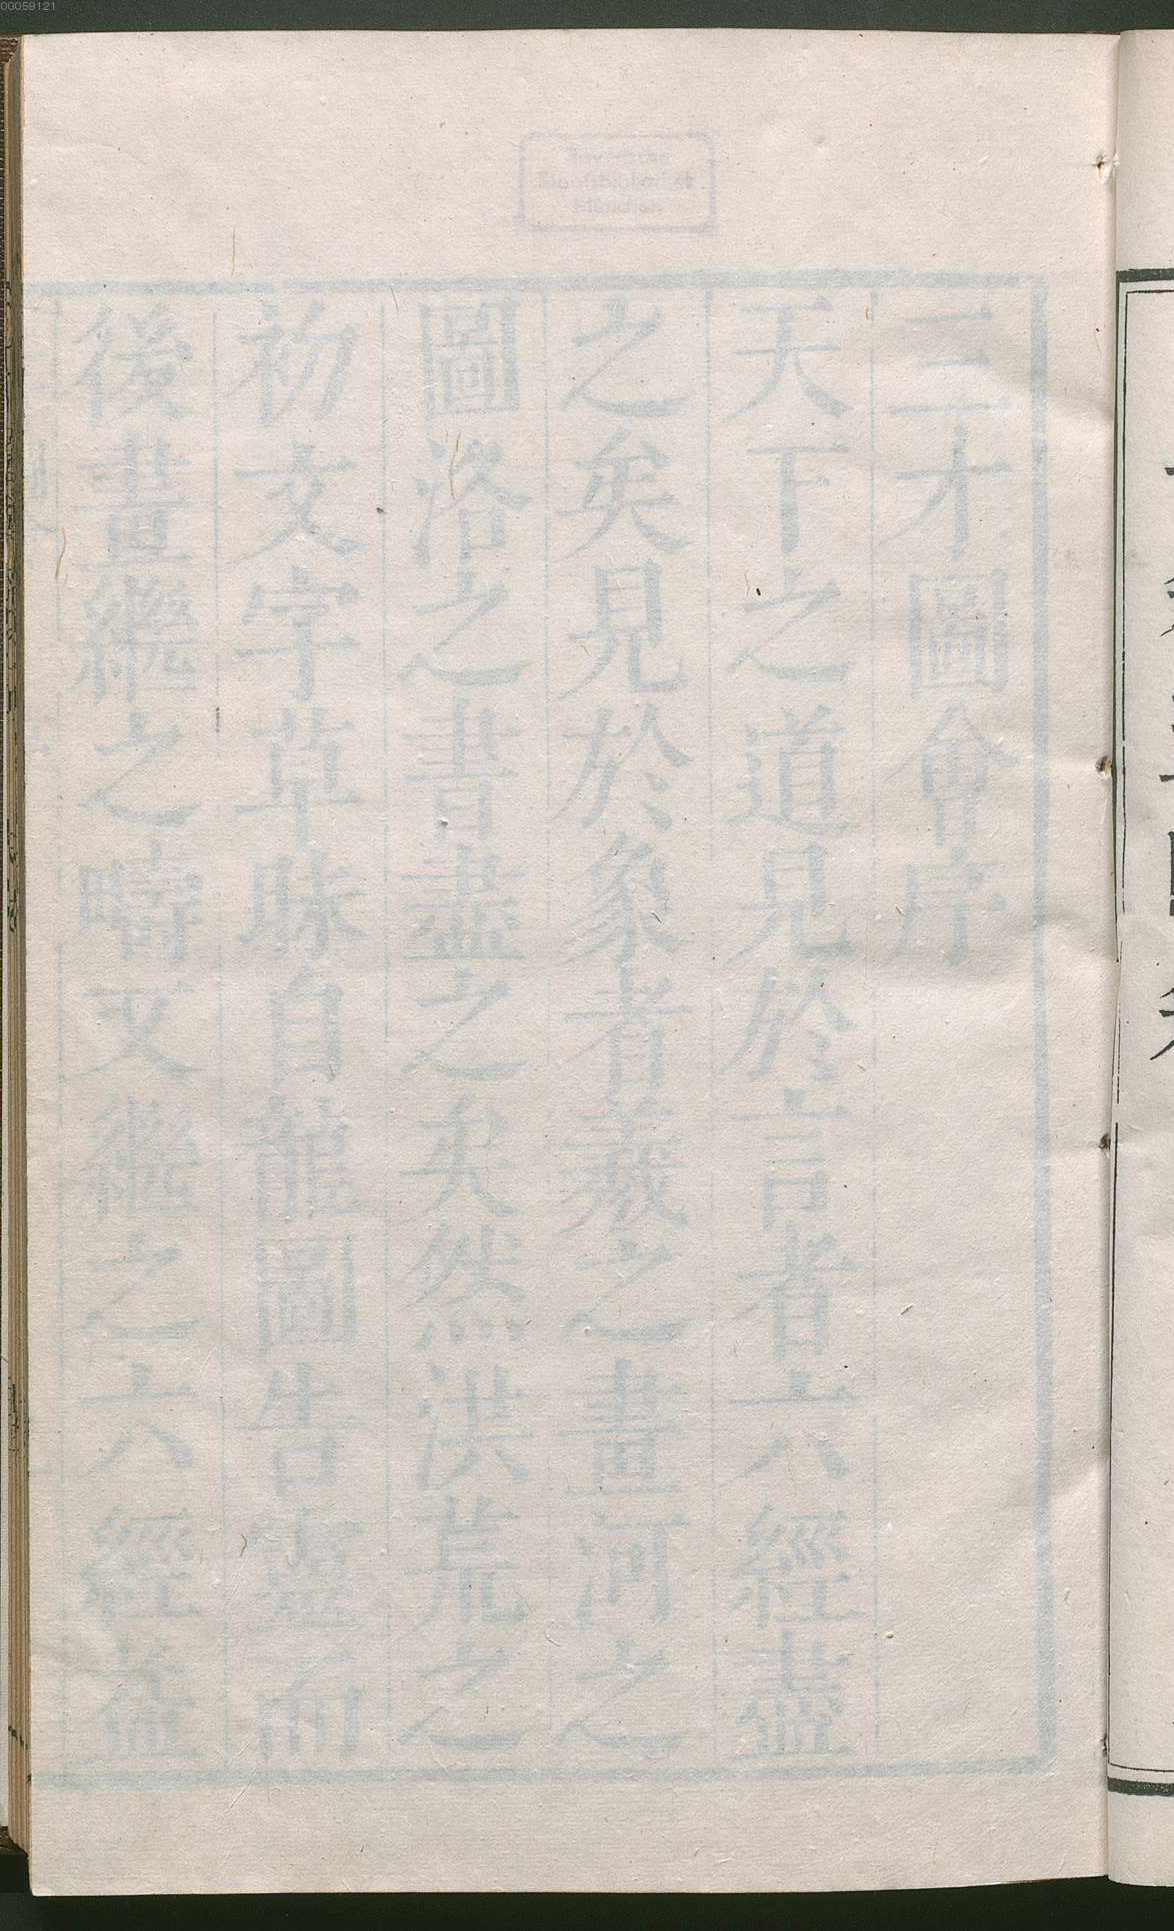 00059121
Bayerische
Staatsbibliothek
München
三才圖會序
天下之道見於言者六經盡
之矣見於象者羲之畫河之
圖洛之書盡之矣然洪荒之
初文字草昧自龍圖告靈而
後畫繼之疇又繼之六經益